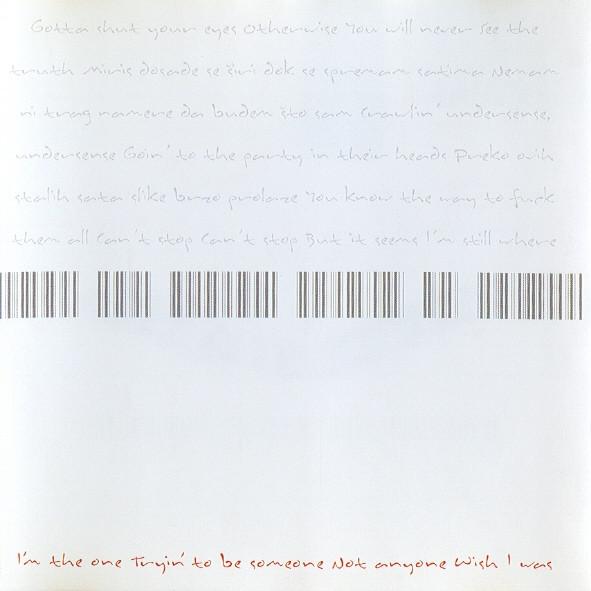 Gotta shut your eyes Otherwise You will never see the
truth Miris dosade se širi dok se spremam satima Nemam
ni trag namere da budem što sam Crawlin' undersense,
undersense Goin' to the party in their heads Preko ovih
stalih sata slike brzo prolaze You know the way to fuck
them all Can't stop Can't stop But it seems I'm still where
I'm the one Tryin' to be someone Not anyone Wish I was